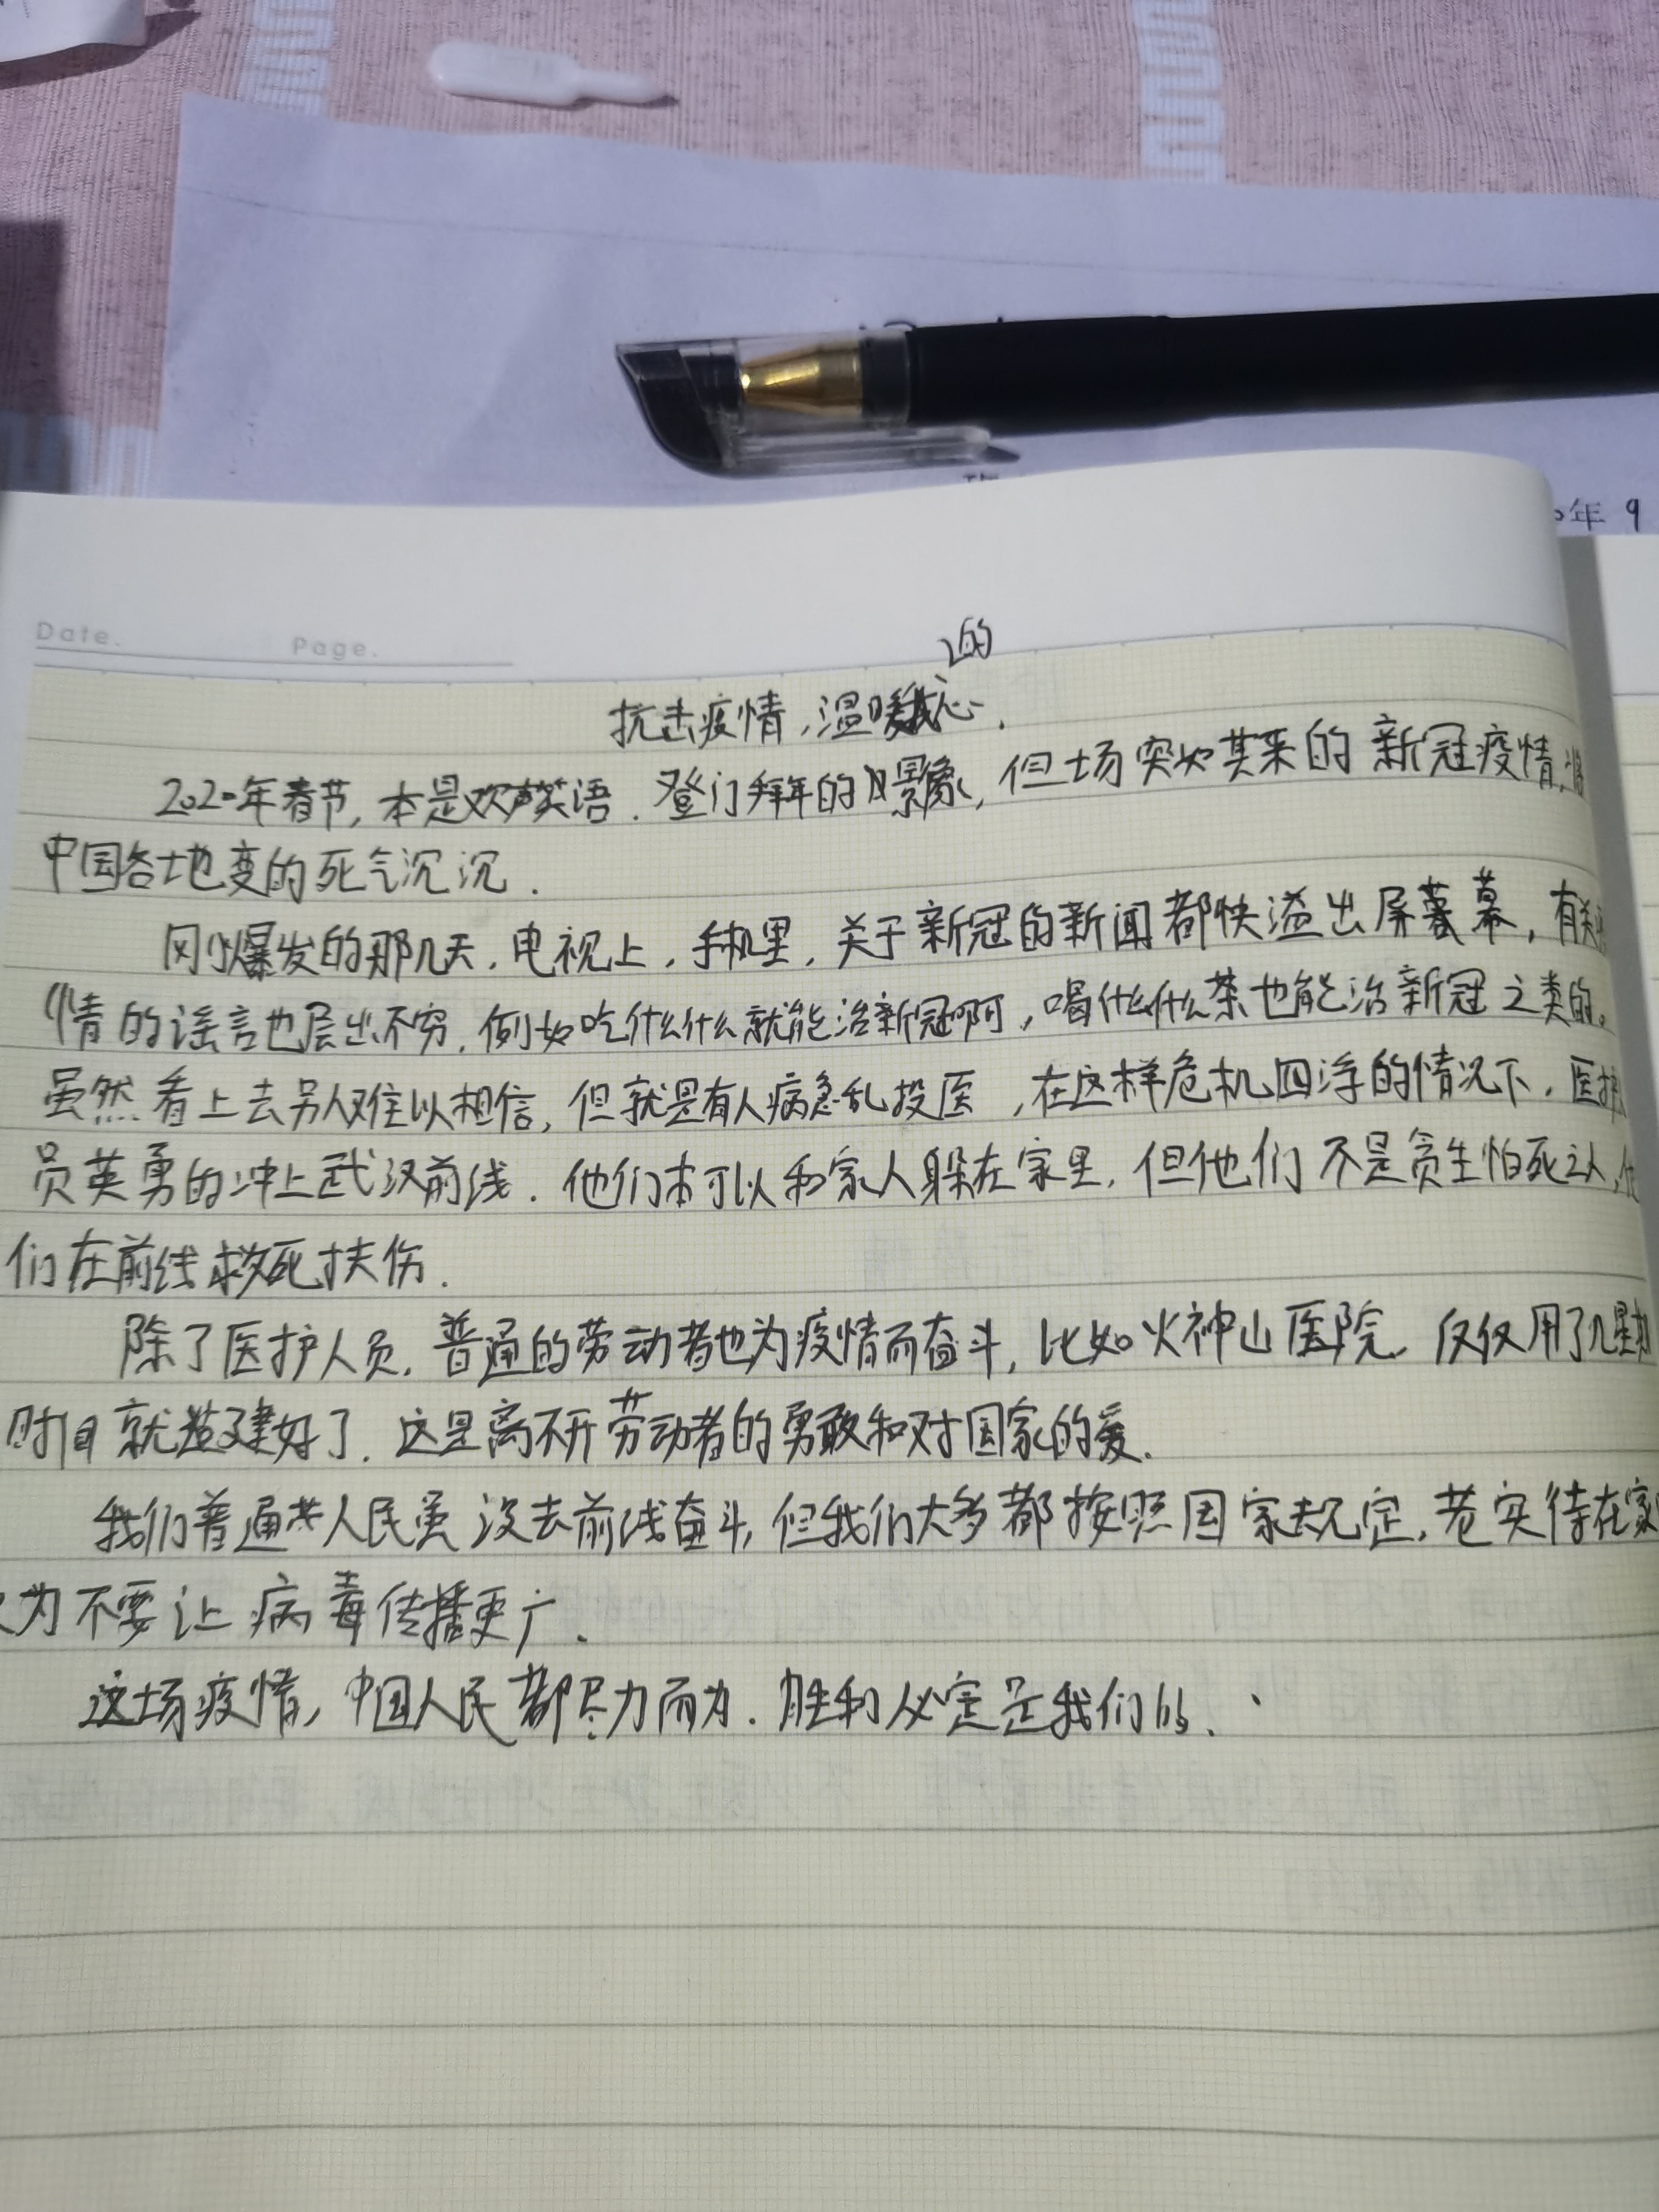 年 9
Date.
Page.
的
抗击疫情,温暖我心.
2020年春节,本是欢声笑语.登门拜年的景象,但场突如其来的新冠疫情,将
中国各地变的死气沉沉.
刚爆发的那几天.电视上,手机里,关于新冠的新闻都快溢出屏幕,有关
情的谣言也层出不穷.例如吃什么什么就能治新冠啊,喝什么什么茶也能治新冠之类的。
虽然看上去另人难以相信,但就是有人病急乱投医,在这样危机四浮的情况下.医护
员英勇的冲上武汉前线.他们本可以和家人躲在家里,但他们不是贪生怕死之人,他
们在前线救死扶伤.
除了医护人员.普通的劳动者也为疫情而奋斗,比如火神山医院.仅仅用了几星期
时间就建好了.这是离不开劳动者的勇敢和对国家的爱.
我们普通人民虽没去前线奋斗,但我们大多都按照国家规定,老实待在家
为不要让病毒传播更广.
这场疫情,中国人民都尽力而为.胜利必定是我们的.